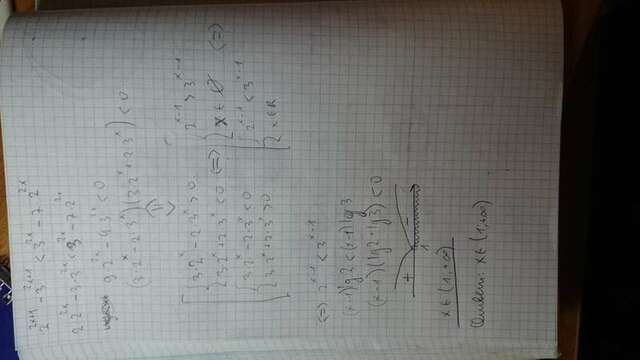 2^{2x+1} - 3^{2x+1} < 3^{2x} - 7·2^{2x}
2·2^{2x} - 3·3^{2x} < 3^{2x} - 7·2^{2x}
9·2^{2x} - 4·3^{2x} < 0
(3·2^x - 2·3^x)(3·2^x + 2·3^x) < 0
⇕
[ { 3·2^x - 2·3^x > 0
{ 3·2^x + 2·3^x < 0
{ 3·2^x - 2·3^x < 0
{ 3·2^x + 2·3^x > 0
(=>)
[ { 2^{x-1} > 3^{x-1}
{ x ∈ ∅
{ 2^{x-1} < 3^{x-1}
{ x ∈ R
(=)
(=) 2^{x-1} < 3^{x-1}
(x-1) lg 2 < (x-1) lg 3
(x-1)(lg 2 - lg 3) < 0
+ -
1
x ∈ (1, +∞)
Ответ: x ∈ (1, +∞)